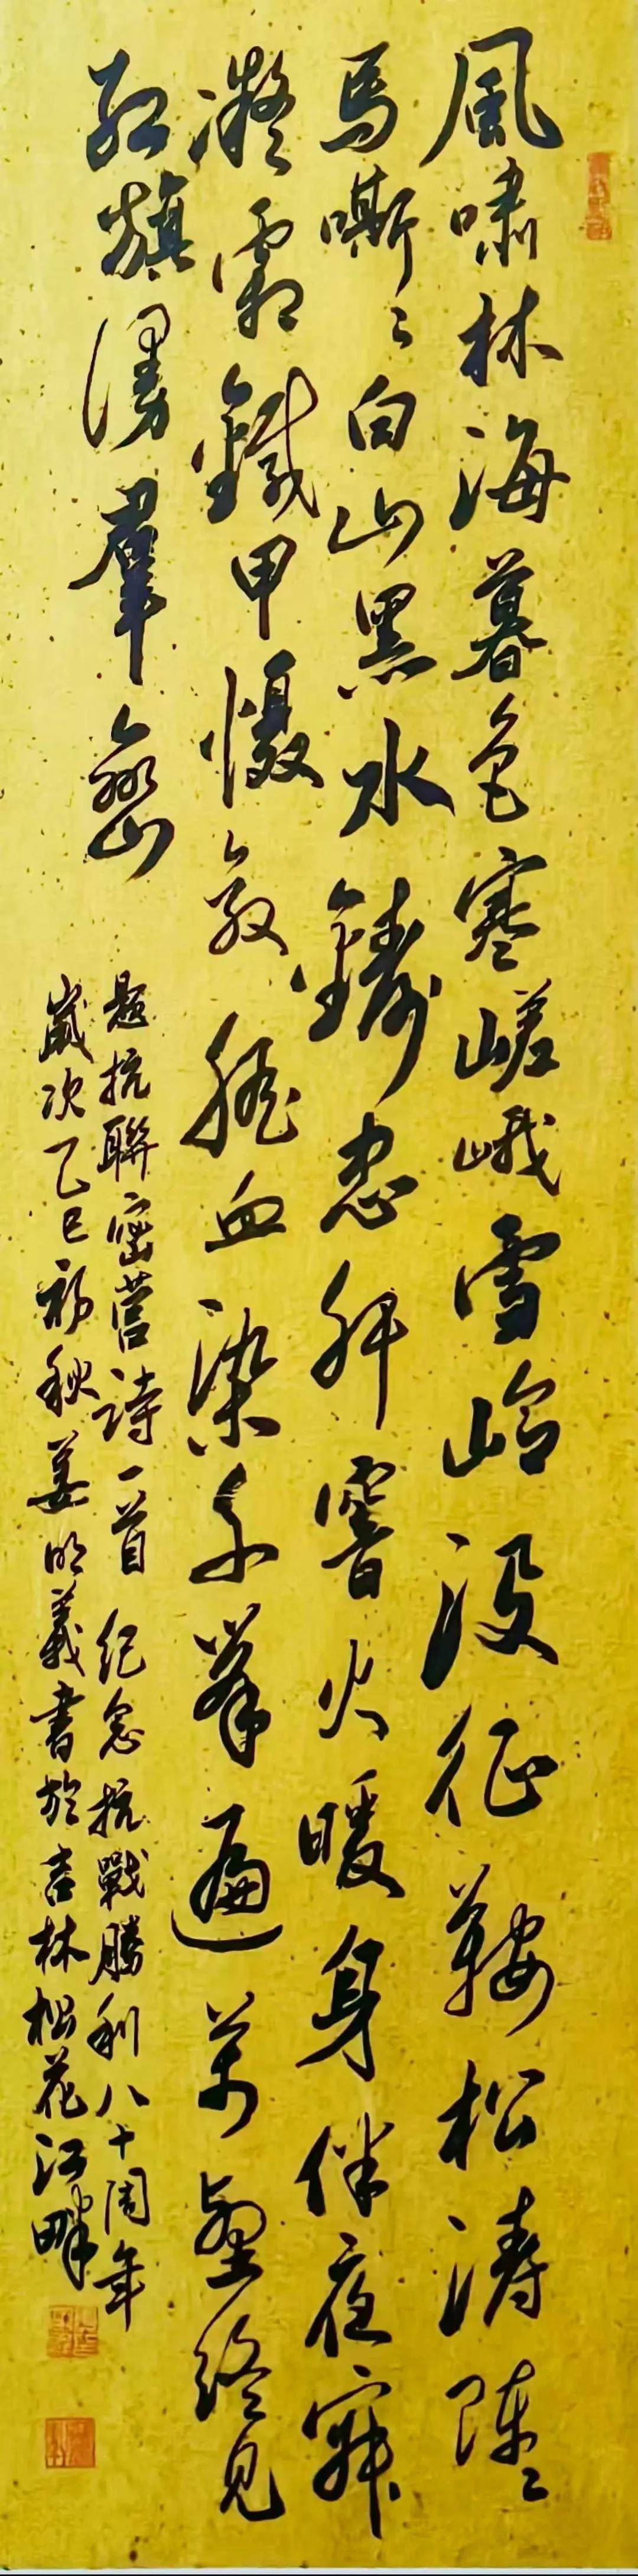 風嘯林海暮色寒嵯峨雪岭没征鞍松濤陣〻
馬嘶〻白山黑水鑄忠肝窨火暖身伴夜寐
凝霜鐵甲慑敌膽血染千峯遍萬壑終見
红旗漫羣巒
題抗聯密营诗一首 纪念抗戰勝利八十周年
歲次乙巳初秋姜明義書於吉林松花江畔